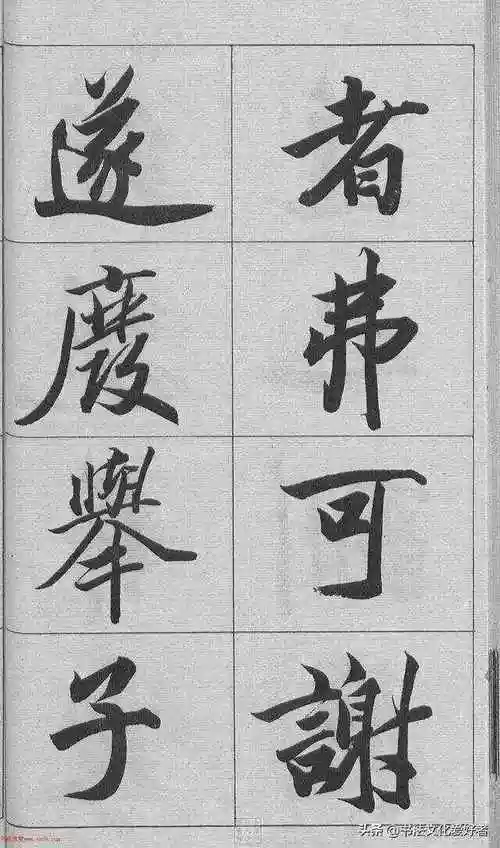 者弗可謝
遂廢舉子
头条@书法文化爱好者